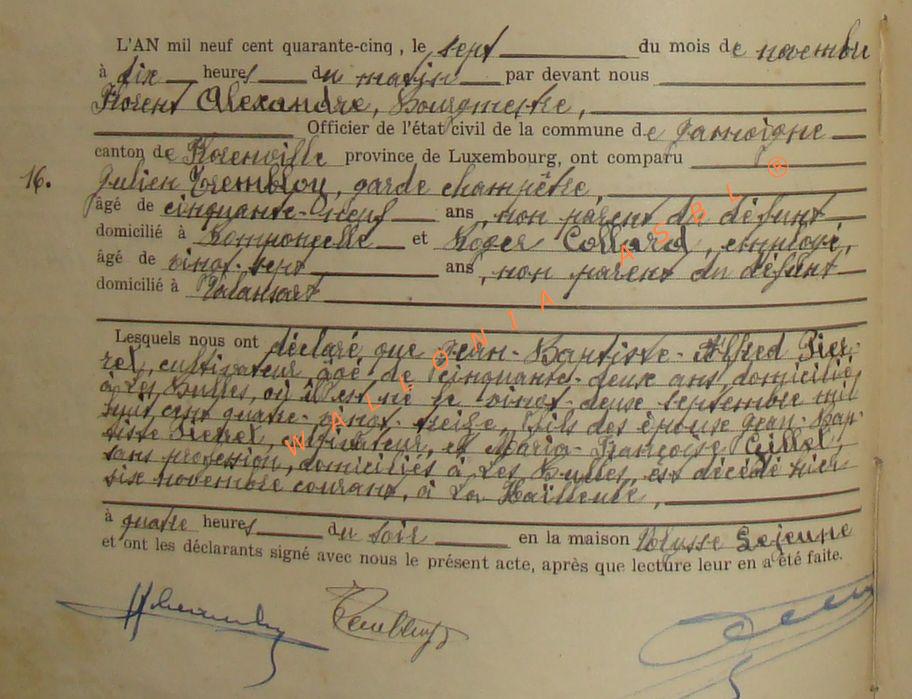 L'AN mil neuf cent quarante-cinq , le sept du mois de novembre
à dix heures du matin par devant nous
Florent Alexandre, Bourgmestre,
Officier de l'état civil de la commune de Jamoigne
canton de Florenville province de Luxembourg, ont comparu
16. Julien Tremblou, garde champêtre,
âgé de cinquante-neuf ans, non parent du défunt
domicilié à Romponcelle et Roger Collard, employé,
âgé de vingt-sept ans, non parent du défunt
domicilié à
Lesquels nous ont déclaré que Jean-Baptiste-Alfred Pier-
ret, cultivateur âgé de cinquante-deux ans, domicilié
à Les Bulles, où il est né le vingt-deux septembre mil
huit cent quatre-vingt-treize, fils des époux Jean-Bap-
tiste Pierret, cultivateur, et Maria-Françoise Gillet,
sans profession, domiciliés à Les Bulles, est décédé hier
six novembre courant, à La
à quatre heures du soir en la maison Ulysse Lejeune
et ont les déclarants signé avec nous le présent acte, après que lecture leur en a été faite.
WALLONIA ASBL ®